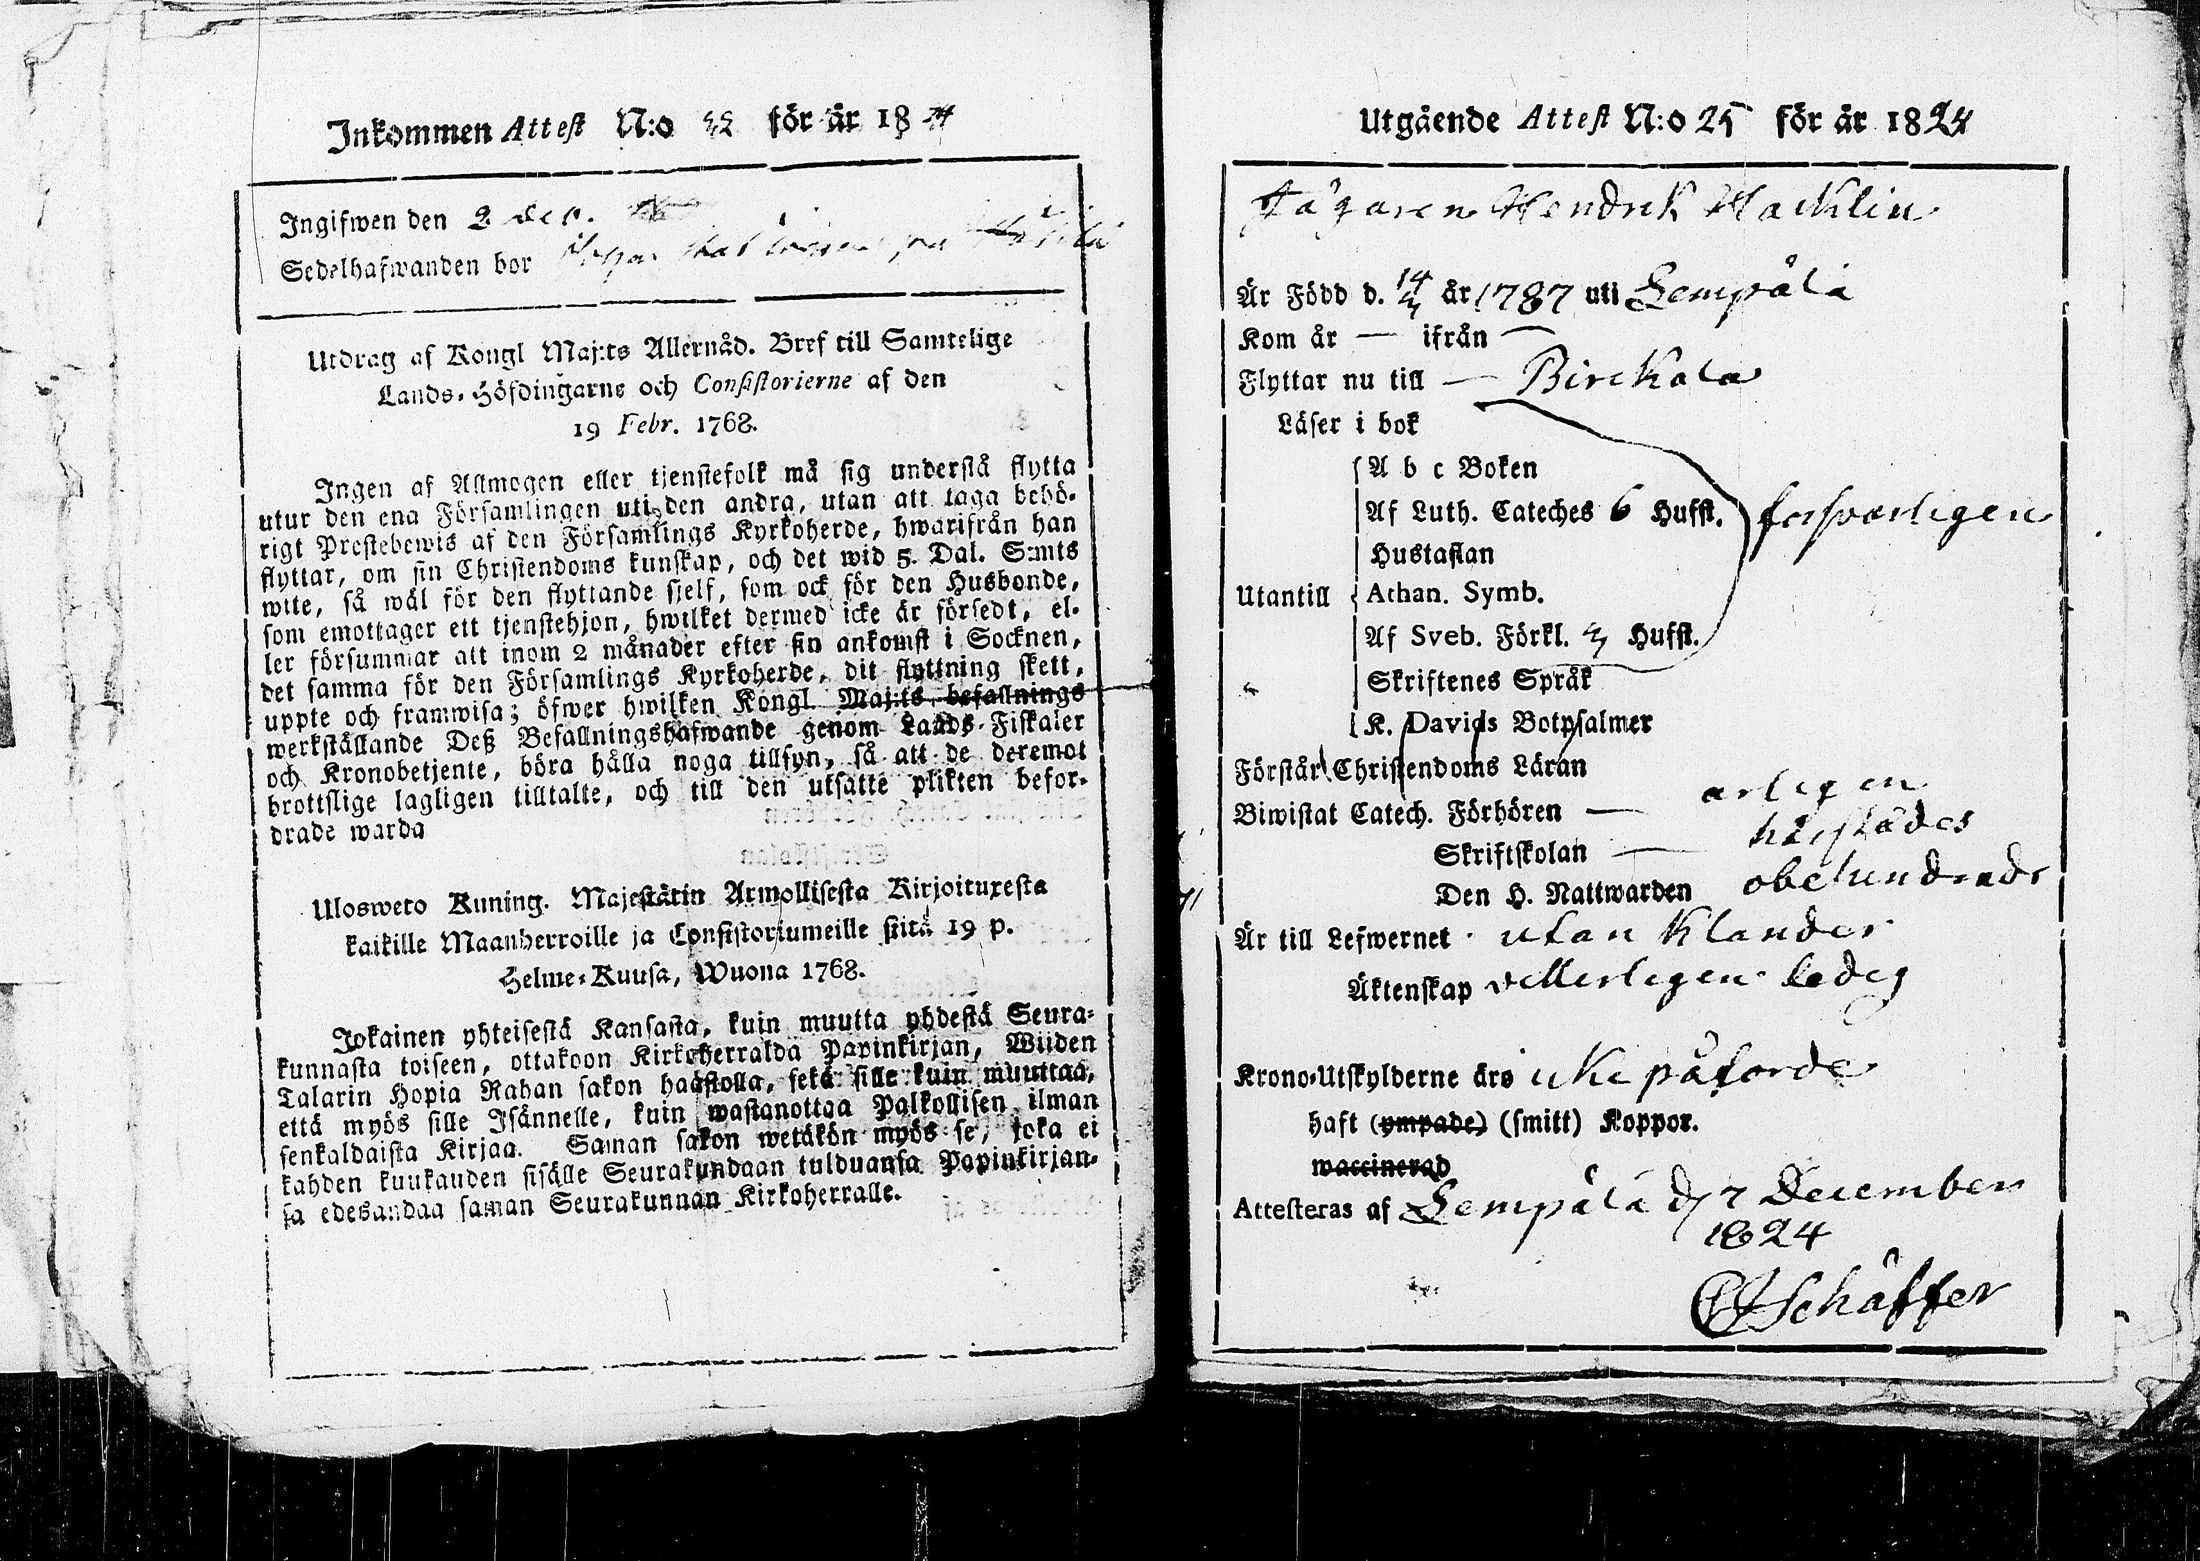 Inkommen Attest N:o 22 för år 1824
Ingifwen den 2 dec.
Sedelhafwanden bor
Utdrag af Kongl Maj:ts Allernåd. Bref till Samtelige
Lands-Höfdingarne och Consistorierne af den
19 Febr. 1768.
Ingen af Allmogen eller tjenstefolk må sig understå flytta
utur den ena Församlingen uti den andra, utan att taga behö-
rigt Prestebewis af den Församlings Kyrkoherde, hwarifrån han
flyttar, om sin Christendoms kunskap, och det wid 5. Dal. S:mts
wite, så wäl för den flyttande sjelf, som ock för den Husbonde,
som emottager ett tjenstehjon, hwilket dermed icke är försedt, el-
ler försummar att inom 2 månader efter sin ankomst i Socknen,
det samma för den Församlings Kyrkoherde, dit flyttning skett,
uppte och framwisa; öfwer hwilken Kongl Maj:ts befallnings
werkställande Deß Befallningshafwande genom Lands-Fiskaler
och Kronobetjente, böra hålla noga tillsyn, så att de deremot
brottslige lagligen tilltalte, och till den utsatte plikten befor-
drade warda
Ulosweto Kuning. Majestätin Armollisesta Kirjoituxesta
kaikille Maanherroille ja Consistoriumeille siitä 19 p.
Helme-Kuusa, Wuona 1768.
Jokainen yhteisestä Kansasta, kuin muutta yhdestä Seura-
kunnasta toiseen, ottakoon Kirkoherralda Papinkirjan, Wiiden
Talarin Hopia Rahan sakon haastolla, sekä sille kuin muuttaa,
että myös sille Isännelle, kuin wastanottaa Palkollisen ilman
senkaldaista Kirjaa. Saman sakon wetäkön myös se, joka ei
kahden kuukauden sisälle Seurakundaan tulduansa Papinkirjan-
sa edesandaa saman Seurakunnan Kirkoherralle.
Utgående Attest N:o 25 för år 1824
Hendrik Hacklin
Är Född d. 14 år 1787 uti Lempälä
Kom år — ifrån —
Flyttar nu till — Birckala
Läser i bok
A b c Boken
Af Luth. Cateches 6 Hufst. försvarligen
Hustaflan
Utantill Athan. Symb.
Af Sveb. Förkl. Hufst.
Skriftenes Språk
K. Davids Botpsalmer
Förstår Christendoms Läran
Biwistat Catech. Förhören — arligen
Skriftskolan — härstädes
Den H. Nattwarden obehindrade
Är till Lefwernet utan klander
Äktenskap vitterligen ledig
Krono-Utskylderne äro icke påförde
haft (ympade) (smitt) Koppor.
waccinerad
Attesteras af Lempälä d 7 December
1824
Schäffer